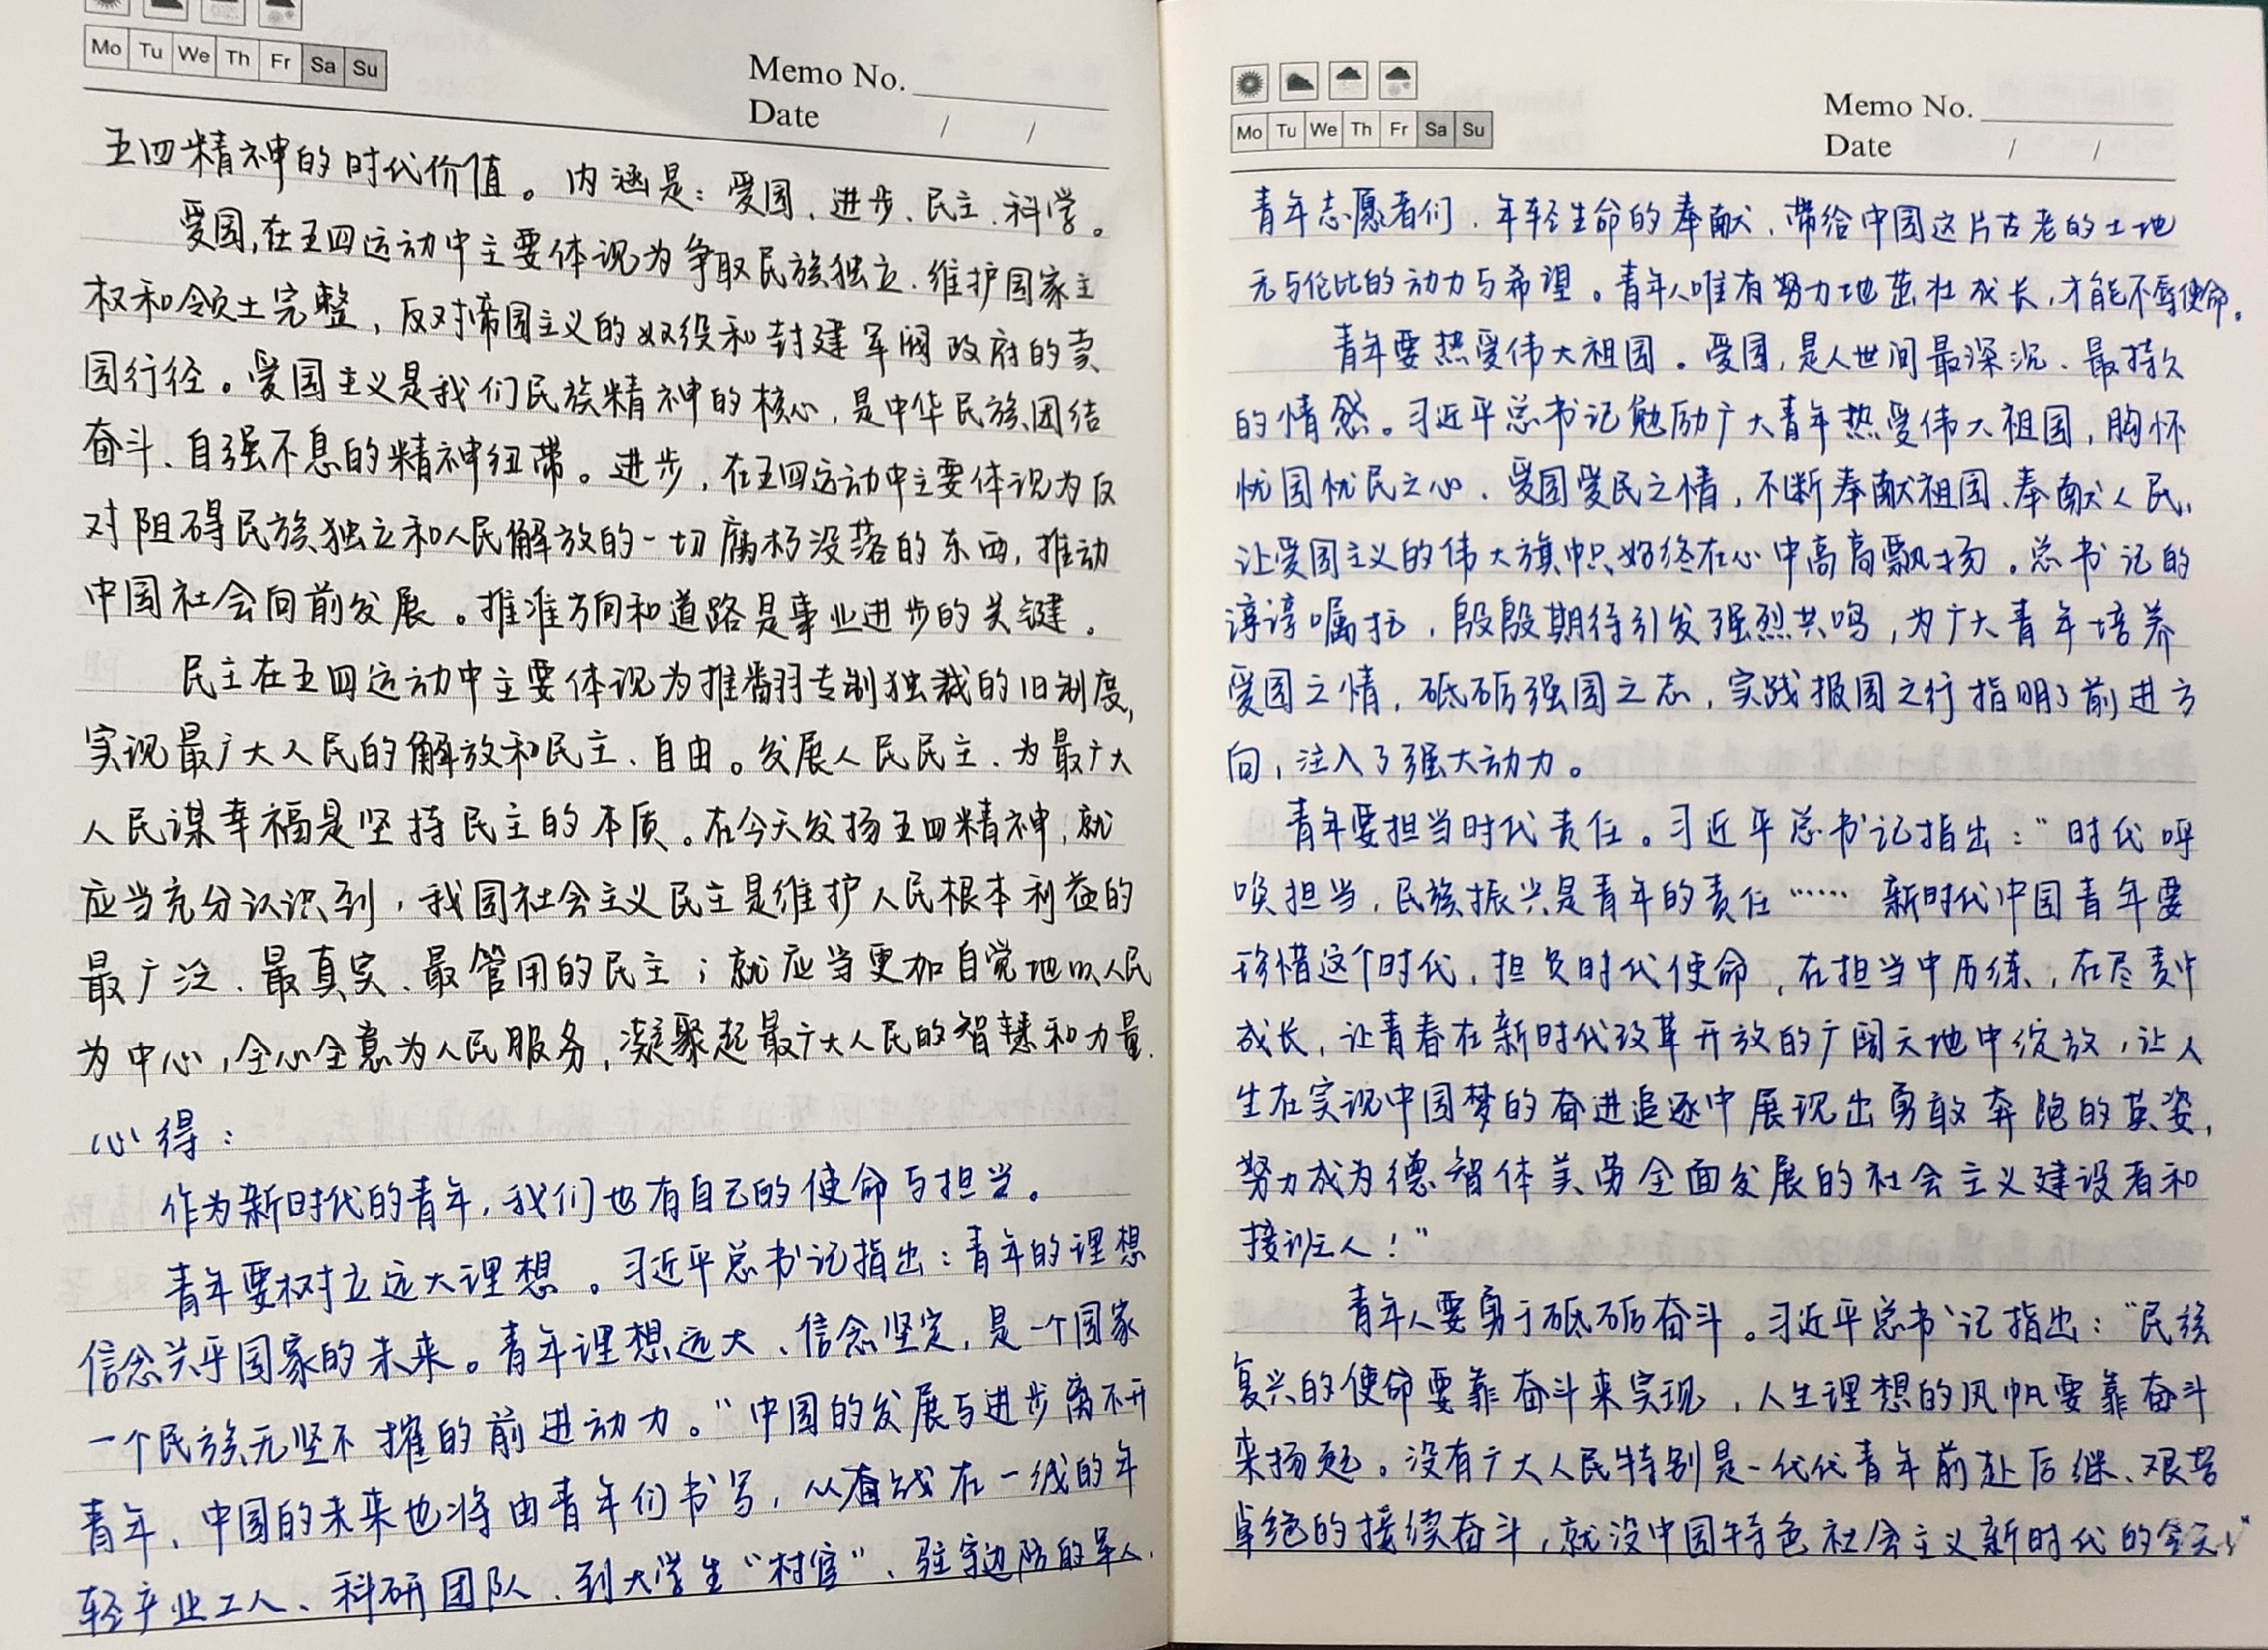 Mo Tu We Th Fr Sa Su
Memo No.
Date / /
五四精神的时代价值。内涵是：爱国、进步、民主、科学。
爱国，在五四运动中主要体现为争取民族独立、维护国家主
权和领土完整，反对帝国主义的奴役和封建军阀政府的卖
国行径。爱国主义是我们民族精神的核心，是中华民族团结
奋斗、自强不息的精神纽带。进步，在五四运动中主要体现为反
对阻碍民族独立和人民解放的一切腐朽没落的东西，推动
中国社会向前发展。推准方向和道路是事业进步的关键。
民主在五四运动中主要体现为推翻专制独裁的旧制度，
实现最广大人民的解放和民主、自由。发展人民民主、为最广大
人民谋幸福是坚持民主的本质。在今天发扬五四精神，就
应当充分认识到，我国社会主义民主是维护人民根本利益的
最广泛、最真实、最管用的民主；就应当更加自觉地以人民
为中心，全心全意为人民服务，凝聚起最广大人民的智慧和力量.
心得：
作为新时代的青年，我们也有自己的使命与担当。
青年要树立远大理想。习近平总书记指出：青年的理想
信念关乎国家的未来。青年理想远大、信念坚定，是一个国家
一个民族无坚不摧的前进动力。"中国的发展与进步离不开
青年、中国的未来也将由青年们书写，从奋战在一线的年
轻产业工人、科研团队、到大学生"村官"、驻守边防的军人、
Mo Tu We Th Fr Sa Su
Memo No.
Date / /
青年志愿者们、年轻生命的奉献、带给中国这片古老的土地
无与伦比的动力与希望。青年人唯有努力地茁壮成长，才能不辱使命。
青年要热爱伟大祖国。爱国，是人世间最深沉、最持久
的情感。习近平总书记勉励广大青年热爱伟大祖国，胸怀
忧国忧民之心、爱国爱民之情，不断奉献祖国、奉献人民，
让爱国主义的伟大旗帜始终在心中高高飘扬。总书记的
谆谆嘱托，殷殷期待引发强烈共鸣，为广大青年培养
爱国之情，砥砺强国之志，实践报国之行指明了前进方
向，注入了强大动力。
青年要担当时代责任。习近平总书记指出："时代呼
唤担当，民族振兴是青年的责任……新时代中国青年要
珍惜这个时代，担负时代使命，在担当中历练，在尽责中
成长，让青春在新时代改革开放的广阔天地中绽放，让人
生在实现中国梦的奋进追逐中展现出勇敢奔跑的英姿，
努力成为德智体美劳全面发展的社会主义建设者和
接班人！"
青年人要勇于砥砺奋斗。习近平总书记指出："民族
复兴的使命要靠奋斗来实现，人生理想的风帆要靠奋斗
来扬起。没有广大人民特别是一代代青年前赴后继、艰苦
卓绝的接续奋斗，就没中国特色社会主义新时代的今天"